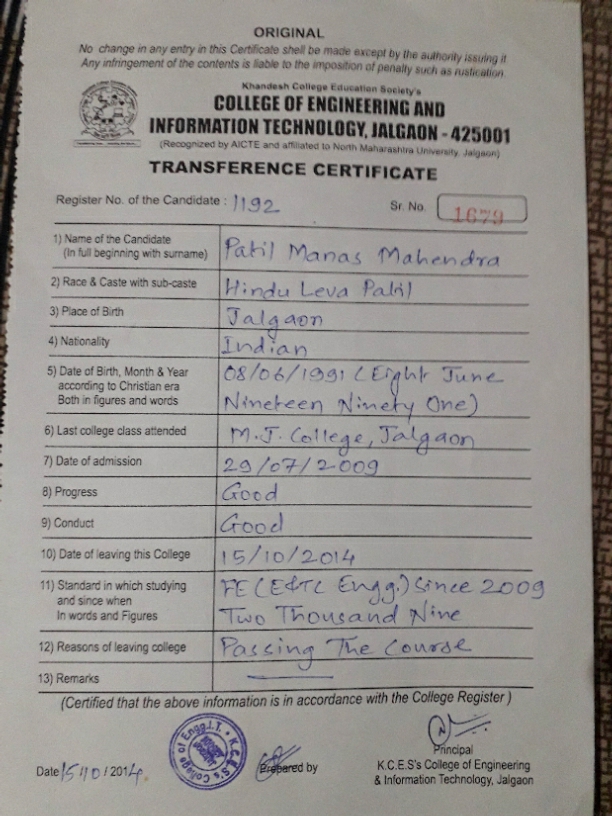 ORIGINAL
No change in any entry in this Certificate shall be made except by the authority issuing it
Any infringement of the contents is liable to the imposition of penalty such as rustication.
Khandesh College Education Society's
COLLEGE OF ENGINEERING AND
INFORMATION TECHNOLOGY, JALGAON - 425001
(Recognized by AICTE and affiliated to North Maharashtra University, Jalgaon)
TRANSFERENCE CERTIFICATE
Register No. of the Candidate : 1192 Sr. No. 1679
1) Name of the Candidate
(In full beginning with surname) Patil Manas Mahendra
2) Race & Caste with sub-caste Hindu Leva Patil
3) Place of Birth Jalgaon
4) Nationality Indian
5) Date of Birth, Month & Year 08/06/1991 (Eight June
according to Christian era
Both in figures and words Nineteen Ninety One)
6) Last college class attended M.J. College, Jalgaon
7) Date of admission 29/07/2009
8) Progress Good
9) Conduct Good
10) Date of leaving this College 15/10/2014
11) Standard in which studying FE (E&TC Engg.) Since 2009
and since when
In words and Figures Two Thousand Nine
12) Reasons of leaving college Passing The Course
13) Remarks
(Certified that the above information is in accordance with the College Register )
K.C.E.S's College of Engg. I.T.
Principal
Date 15/10/2014. Prepared by K.C.E.S's College of Engineering
& Information Technology, Jalgaon